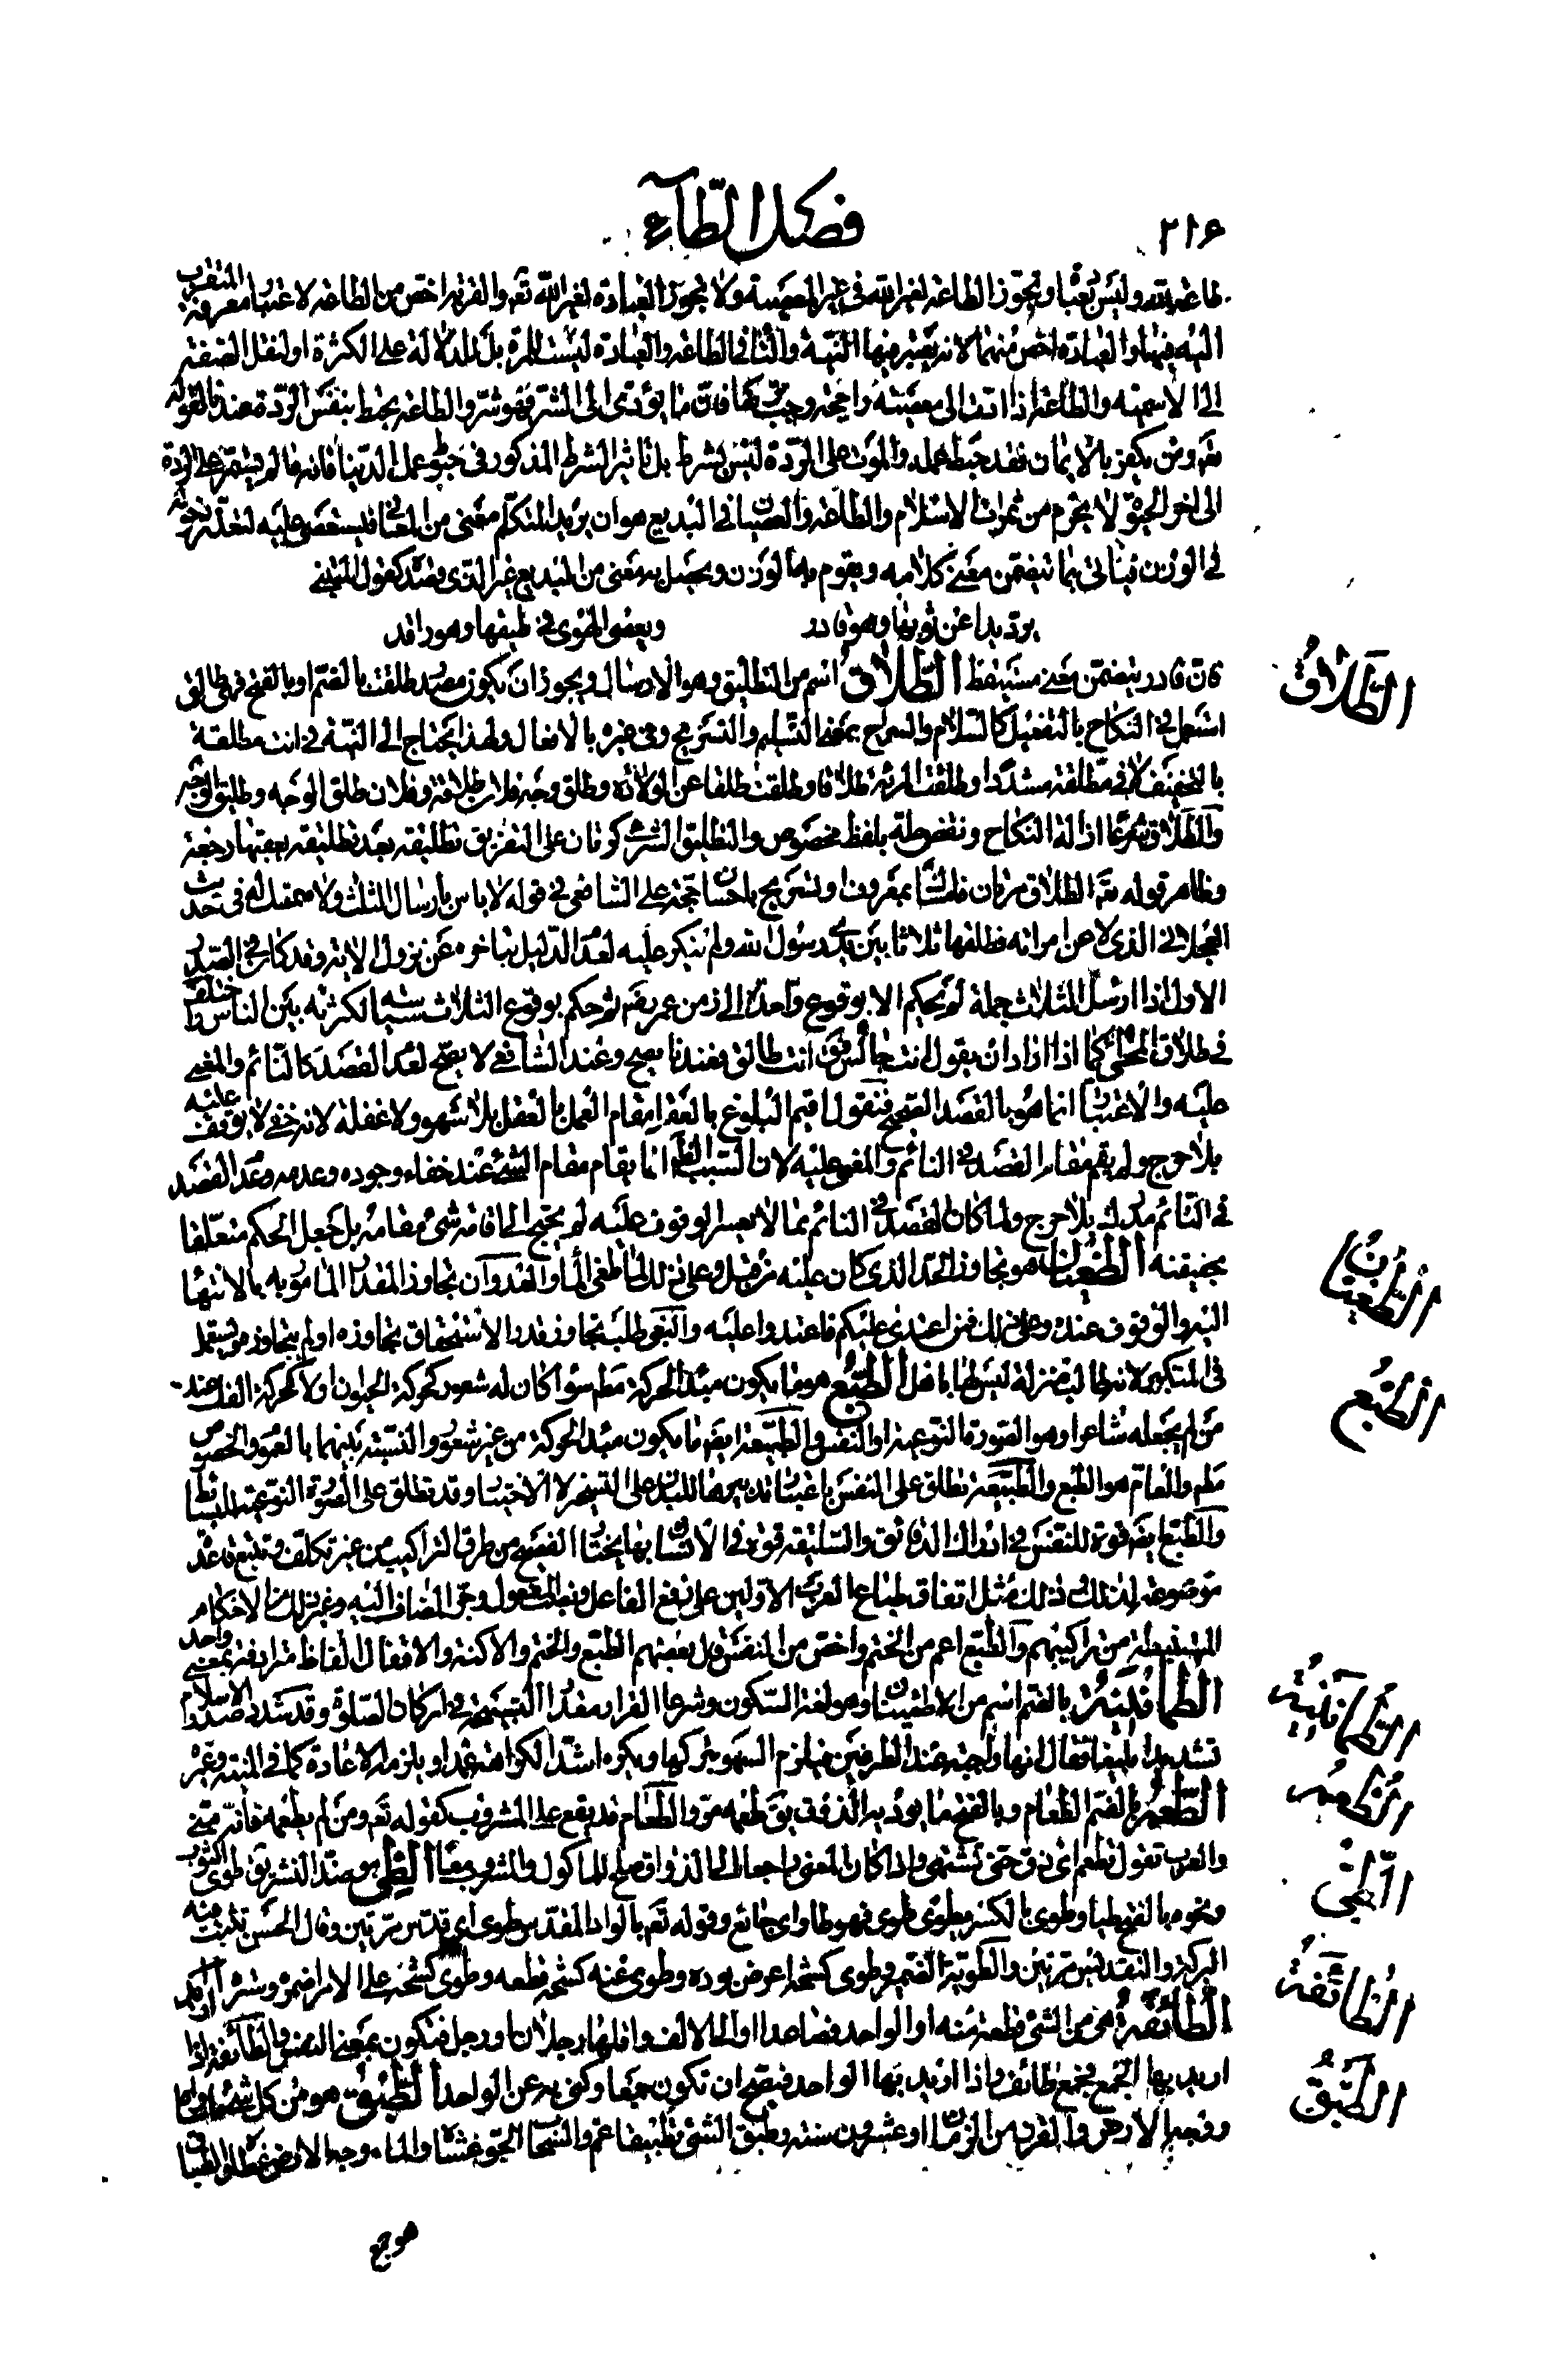 ٢١۶
فصل الطّآء
طاعة لله وليس تعبدا ويجوز الطاعة لغير الله في غير المعصية ولا يجوز العبادة لغير الله تعم والقربة اخص من الطاعة لاعتبار معرفة المتقرب
اليه فيها والعبادة اخص منهما لانه يعتبر فيها النية والتا في الطاعة والعبادة ليست للمرة بل للدلالة على الكثرة او لنقل الصفة
الى الاسمية والطاعة اذا ادت الى معصية راجحة وجب تركها فان ما يؤدى الى الشر فهو شر والطاعة يحبط بنفس الردة عندنا لقوله
تعم ومن يكفر بالايمان فقد حبط عمله والموت على الردة ليس بشرط بل تاثير الشرط المذكور في حبوط عمل الدنيا فانه ما لم يستمر على الردة
الى اخر الحيوة لا يحرم من ثمرات الاسلام والطاعة والعصيان في البديع هو ان يريد المتكلم معنى من المعاني فيستعصى عليه لتعذر دخوله
في الوزن فياتى بما يتضمن معنى كلامه ويقوم به الوزن ويحصل به معنى من البديع غير الذى قصد كقول المتنبي
يرد يدا عن ثوبها وهو قادر ويعصى الهوى في طيفها وهو راقد
فان قادر يتضمن معنى مستيقظ الطَّلَاقُ اسم من التطليق وهو الارسال ويجوز ان يكون مصدر طلقت بالضم او بالفتح فهى طالق
استعمل في النكاح بالتفعيل كالسلام والسراح بمعنى التسليم والتسريح وفي غيره بالافعال ولهذا يحتاج الى النية في انت مطلقة
بالتخفيف لا في مطلقة مشددا وطلقت المرئة طلاقا وطلقت طلقا عن الولادة وطلق وجه فلان طلاقة وفلان طلق الوجه وطليق الوجه
والطلاق شرعا ازالة النكاح ونقض حله بلفظ مخصوص والتطليق الشرعى كرتان على التفريق تطليقة بعد تطليقة يعقبها رجعة
وظاهر قوله تعم الطلاق مرتان فامساك بمعروف او تسريح باحسان حجة على الشافعى في قوله لا باس بارسال الثلث ولا متمسك له في حديث
العجلانى الذى لاعن امراته فطلقها ثلاثا بين يدى رسول الله ولم ينكر عليه لعدم الدليل بتاخره عن نزول الاية وقد كان في الصدر
الاول اذا ارسل الثلاث جملة لم يحكم الا بوقوع واحدة الى زمن عمر رضه ثم حكم بوقوع الثلاث سياسة لكثرته بين الناس واختلف
في طلاق المخطى كما اذا اراد ان يقول انت جالس فق انت طالق فعندنا يصح وعند الشافعى لا يصح لعدم القصد كالنائم والمغمى
عليه والاعتبار انما هو بالقصد الصحيح فنقول اقيم البلوغ بالعقل مقام العمل بالعقل بلا سهو ولا غفلة لانه خفى لا يوقف عليه
بلا حرج ولم يقم مقام القصد في النائم والمغمى عليه لان السبب الظاهر انما يقام مقام الشئ عند خفاء وجوده وعدمه وعدم القصد
في النائم مدرك بلا حرج ولما كان القصد في النائم مما لا يعسر الوقوف عليه لم يحتج الى اقامة شئ مقامه بل جعل الحكم متعلقا
بحقيقته الطُّغْيَان هو تجاوز الحد الذى كان عليه من قبل وعلى ذلك لما طغى الماء والعدوان تجاوز المقدار المامور به بالانتهاء
اليه والوقوف عنده وعلى ذلك فمن اعتدى عليكم فاعتدوا عليه والبغى طلب تجاوز قدر الاستحقاق تجاوزه او لم يتجاوزه ويستعمل
في المتكبر لانه طالب منزلة ليس لها باهل الطَّبْعُ هو ما يكون مبدء الحركة مطم سواء كان له شعور كحركة الحيوان او لا كحركة الفلك عند
من لم يجعله شاعرا وهو الصورة النوعية او النفس والطبيعة ايضم ما يكون مبدء الحركة من غير شعور والنسبة بينهما بالعموم والخصوص
مطم والعام هو الطبع والطبيعة تطلق على النفس باعتبار تدبيرها للبدن على التسخير لا الاختيار وقد تطلق على الصورة النوعية للبسائط
والطبع ايضم قوة للنفس في ادراك الدقائق والسليقة قوة في الانسان بها يختار الفصيح من طرق التراكيب من غير تكلف وتتبع قاعدة
موضوعة لذلك وذلك مثل اتفاق طباع العرب الاولين على رفع الفاعل ونصب المفعول وجر المضاف اليه وغير ذلك من الاحكام
المستنبطة من تراكيبهم والطبع اعم من الختم واخص من النقش وقال بعضهم الطبع والختم والاكنة والاقفال الفاظ مترادفة بمعنى واحد
الطُّمَانِينَةُ بالضم اسم من الاطمينان وهو لغة السكون وشرعا القرار مقدار التسبيحة في اركان الصلوة وقد شدد صدر الاسلام
تشديدا بليغا فقال انها واجبة عند الطرفين فيلزم السهو بتركها ويكره اشد الكراهة عمدا ويلزمه الاعادة كما في المنية وغيره
الطُّعْمُ بالضم الطعام وبالفتح ما يؤديه الذوق يقم طعمه مر والطعام قد يقع على المشروب كقوله تعم ومن لم يطعمه فانه منى
والعرب تقول تطعم اى ذق حتى تشتهى واذا كان المعنى راجعا الى الذوق صلح للماكول والمشروب معا الطَّىُّ هو ضد النشر يقم طوى الثوب
ونحوه بالفتح طيا وطوى بالكسر يطوى طوى فهو طاو اى جائع وقوله تعم بالواد المقدس طوى اى قدس مرتين وقال الحسن ثنيت فيه
البركة والتقديس مرتين والطوية الضمير وطوى كشحه اعرض بوده وطوى عنه كشحه قطعه وطوى كشحه على الامر اضمره وستره
الطَّائِفَةُ هى من الشئ قطعة منه او الواحد فصاعدا او الى الالف واقلها رجلان او رجل فتكون بمعنى النفس والطائفة اذا
اريد بها الجمع فجمع طائف واذا اريد بها الواحد فيصح ان تكون جمعا وكنى به عن الواحد الطَّبَقُ هو من كل شئ ما ساواه
ووجه الارض والقرن من الزمان او عشرون سنة وطبق الشئ تطبيقا عم والسحاب الجو غشاه والماء وجه الارض غطاه والطباق
هو جمع
الطَّلَاقُ
الطُّغيَانُ
الطَّبْعُ
الطُّمَانِينَةُ
الطُّعْمُ
الطَّىُّ
الطَّائِفَةُ
الطَّبَقُ